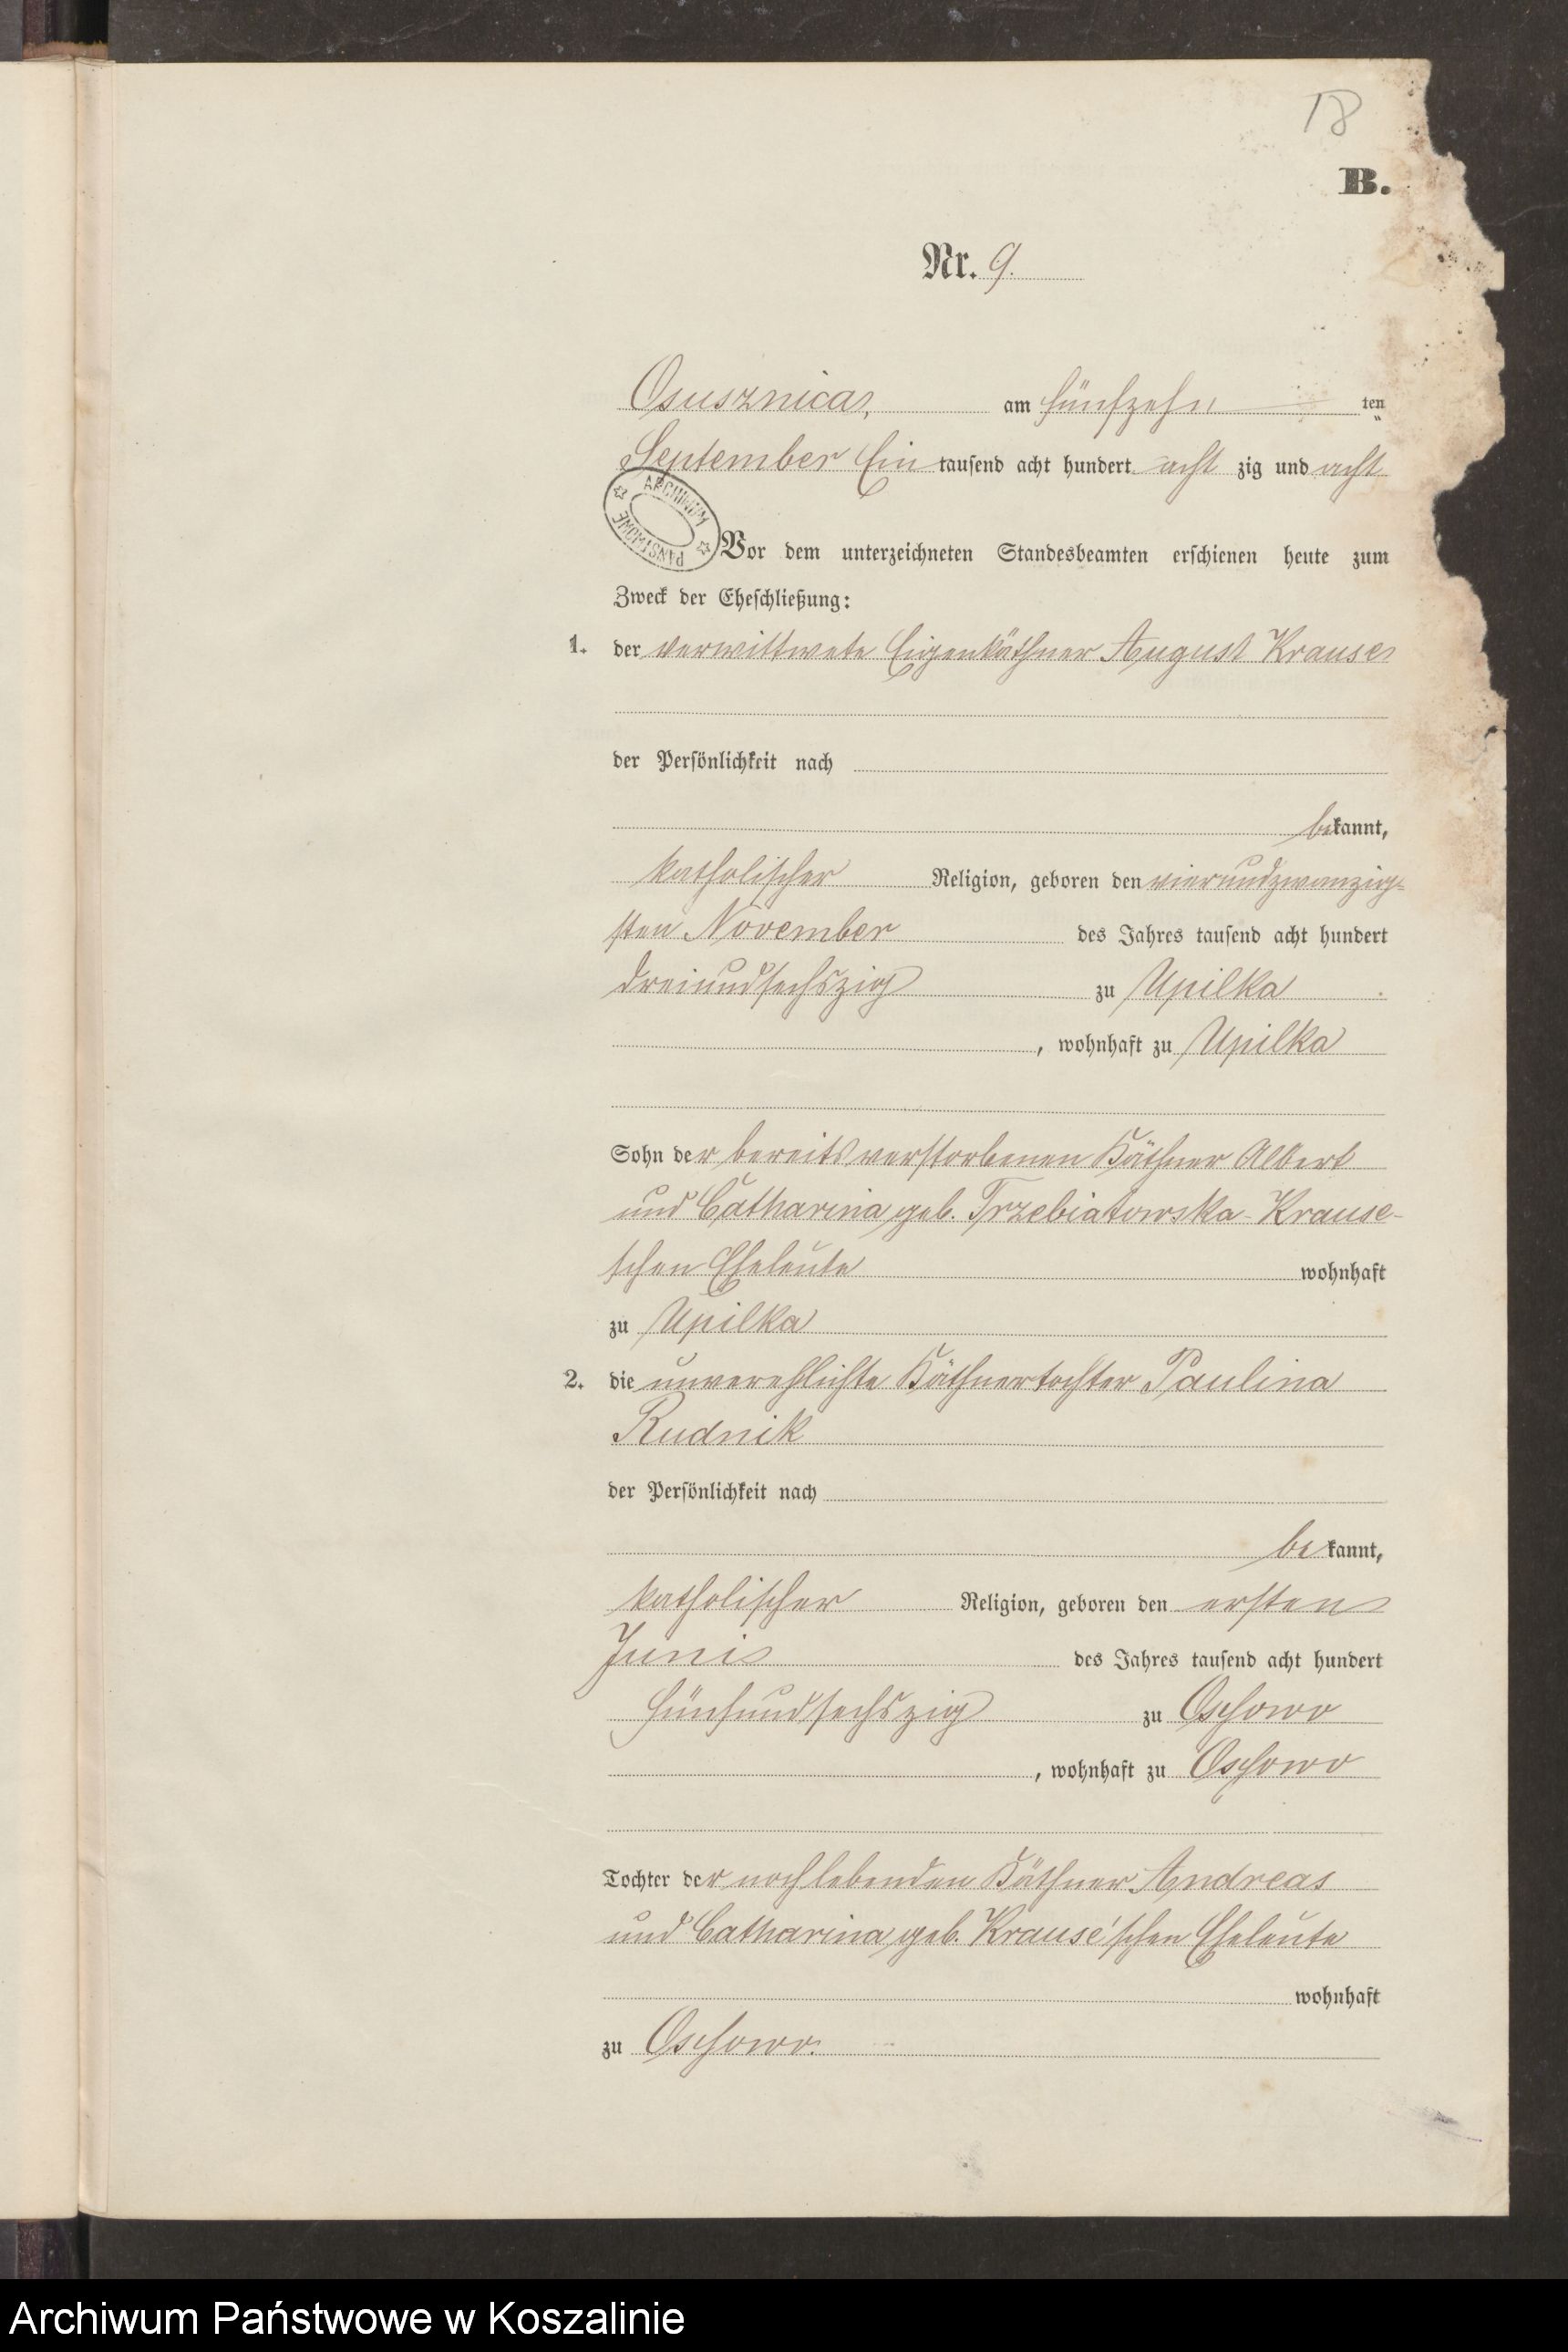 18
B.
Nr. 9.
Osusznica, am fünfzehn ten
September Ein tausend acht hundert acht zig und acht
ARCHIWUM PAŃSTWOWE
Vor dem unterzeichneten Standesbeamten erschienen heute zum
Zweck der Eheschließung:
1. der verwittwete Eigenkäthner August Krause
der Persönlichkeit nach
bekannt,
katholischer Religion, geboren den vierundzwanzig-
sten November des Jahres tausend acht hundert
dreiundsechszig zu Upilka
, wohnhaft zu Upilka
Sohn der bereits verstorbenen Käthner Albert
und Catharina geb. Trzebiatowska-Krause-
schen Eheleute wohnhaft
zu Upilka
2. die unverehlichte Käthnertochter Paulina
Rudnik
der Persönlichkeit nach
bekannt,
katholischer Religion, geboren den ersten
Juni des Jahres tausend acht hundert
fünfundsechszig zu Oschowo
, wohnhaft zu Oschowo
Tochter der noch lebenden Käthner Andreas
und Catharina geb. Krause'schen Eheleute
wohnhaft
zu Oschowo.
Archiwum Państwowe w Koszalinie